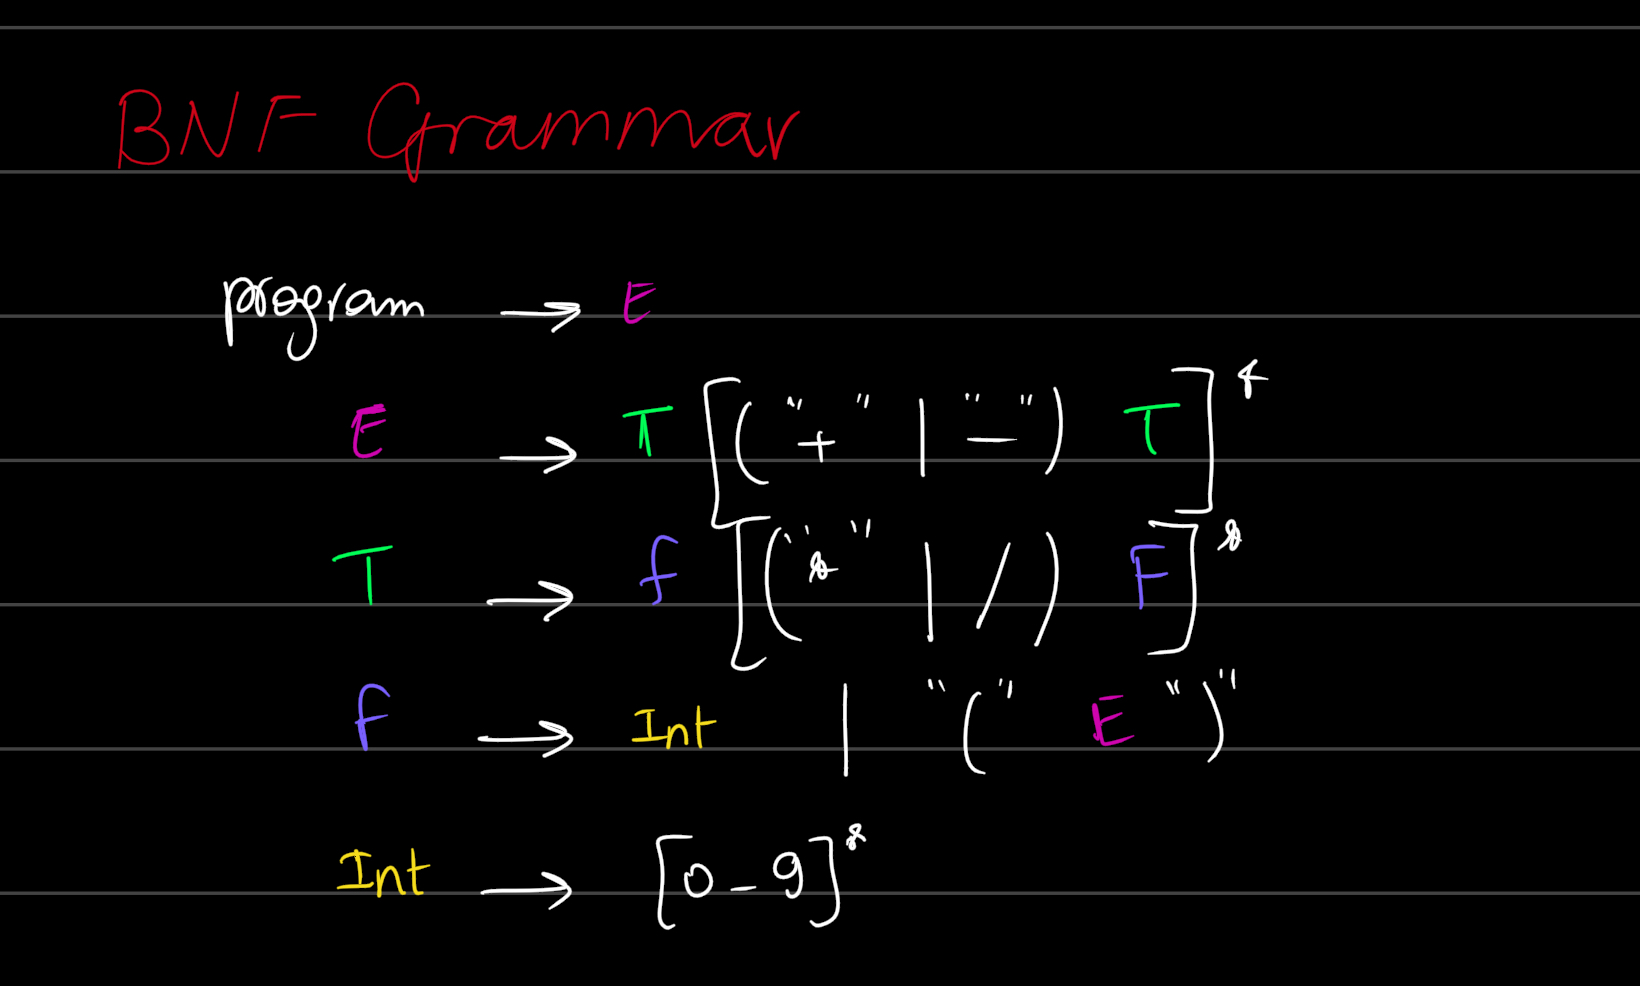 BNF Grammar
program → E
E → T [("+" | "-") T]*
T → F [("*" | /) F]*
F → Int | "(" E ")"
Int → [0-9]*